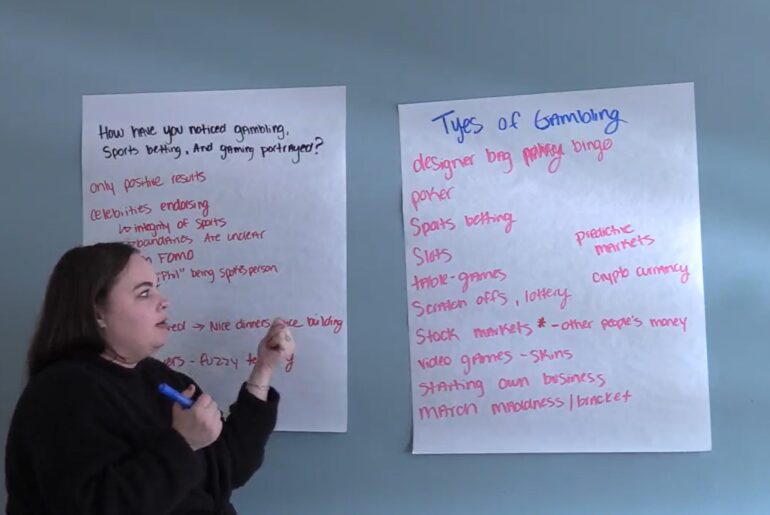 How have you noticed gambling,
Sports betting, And gaming portrayed?
only positive results
celebirities endorsing
↳ integrity of sports
boundaries Are unclear
FOMO
"Phil" being spokesperson
→ Nice dinners, nice building
- fuzzy
Tyes of Gambling
designer bag bingo
poker
Sports betting
Slots
table-games
Scratch offs, lottery
Stock markets * - other people's money
video games - skins
starting own business
March Maddness/bracket
predictive
markets
crypto currency